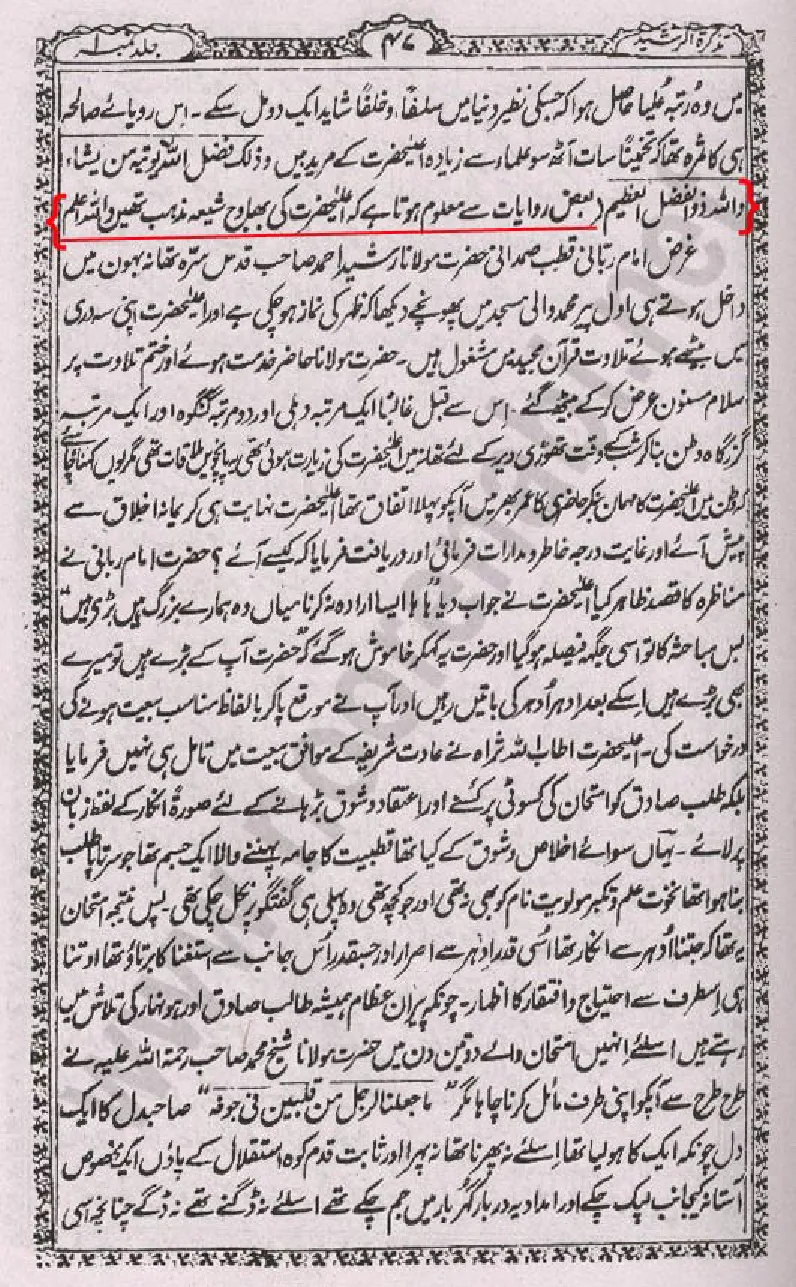 تذکرۃ الرشید
۴۷
جلد نمبر ۱
میں وہ رتبہ عُلیا حاصل ہوا کہ جسکی نظیر دنیا میں سلفاً و خلفاً شاید ایک دو مل سکے۔ اس رویائے صالحہ
ہی کا ثمرہ تھا کہ تخمیناً سات آٹھ سو علماء سے زیادہ اعلیٰحضرت کے مرید ہیں و ذلک فضل اللہ یوتیہ من یشاء
واللہ ذو الفضل العظیم (بعض روایات سے معلوم ہوتا ہے کہ اعلیٰحضرت کی بھاوج شیعہ مذہب تھیں واللہ اعلم
غرض امام ربانی قطب صمدانی حضرت مولانا رشید احمد صاحب قدس سرہ تھانہ بہون میں
داخل ہوتے ہی اول پیر محمد والی مسجد میں پہونچے دیکھا کہ ظہر کی نماز ہو چکی ہے اور اعلیٰحضرت اپنی سہ دری
میں بیٹھے ہوئے تلاوت قرآن مجید میں مشغول ہیں۔ حضرت مولانا حاضر خدمت ہوئے اور ختم تلاوت پر
سلام مسنون عرض کر کے بیٹھ گئے۔ اس سے قبل غالباً ایک مرتبہ دہلی اور دو مرتبہ گنگوہ اور ایک مرتبہ
گزرگاہ وطن بنا کر شب کے وقت تھوڑی دیر کے لئے تھانہ میں اعلیٰحضرت کی زیارت ہوئی تھی یہ پانچویں ملاقات تھی مگر یوں کہنا چاہئے
کہ وطن میں اعلیٰحضرت کا مہمان بنکر حاضری کا عمر بھر میں آپکو پہلا اتفاق تھا اعلیٰحضرت نہایت ہی کریمانہ اخلاق سے
پیش آئے اور غایت درجہ خاطر و مدارات فرمائی اور دریافت فرمایا کہ کیسے آئے؟ حضرت امام ربانی نے
مناظرہ کا قصد ظاہر کیا اعلیٰحضرت نے جواب دیا "ہا ہا ایسا ارادہ نہ کرنا میاں وہ ہمارے بزرگ ہیں بڑے ہیں"
بس مباحثہ کا تو اسی جگہ فیصلہ ہو گیا اور حضرت یہ کہکر خاموش ہو گئے کہ "حضرت آپ کے بڑے ہیں تو میرے
بھی بڑے ہیں اسکے بعد ادہر اُدہر کی باتیں رہیں اور آپ نے موقع پا کر بالفاظ مناسب بیعت ہونے کی
درخواست کی۔ اعلیٰحضرت اطاب اللہ ثراہ نے عادت شریفہ کے موافق بیعت میں تامل ہی نہیں فرمایا
بلکہ طلب صادق کو امتحان کی کسوٹی پر کسنے اور اعتقاد و شوق بڑہانے کے لئے صورۃً انکار کے لفظ زبان
پر لائے۔ یہاں سوائے اخلاص و شوق کے کیا تھا قطبیت کا جامہ پہننے والا ایک جسم تھا جو سرتاپا طلب
بنا ہوا تھا نخوت علم و تکبر مولویت نام کو بھی نہ تھی اور جو کچھ تھی وہ پہلی ہی گفتگو پر نکل چکی تھی۔ پس نتیجہ امتحان
یہ تھا کہ جتنا اُدہر سے انکار تھا اُسی قدر اِدہر سے اصرار اور جسقدر اُس جانب سے استغنا کا برتاؤ تھا اوتنا
ہی اِسطرف سے احتیاج و افتقار کا اظہار۔ چونکہ پیران عظام ہمیشہ طالب صادق اور ہونہار کی تلاش میں
رہتے ہیں اسلئے انہیں امتحان والے دو تین دن میں حضرت مولانا شیخ محمد صاحب رحمۃ اللہ علیہ نے
طرح طرح سے آپکو اپنی طرف مائل کرنا چاہا مگر "ماجعلنا لرجل من قلبین فی جوفہ" صاحبدل کا ایک
دل چونکہ ایک کا ہو لیا تھا اسلئے نہ پھرنا تھا نہ پہرا اور ثابت قدم کوہ استقلال کے پاؤں ایک مخصوص
آستانہ کیجانب لپک چکے اور امدادیہ دربار گہربار میں جم چکے تھے اسلئے نہ ڈگنے تھے نہ ڈگے چنانچہ اسی